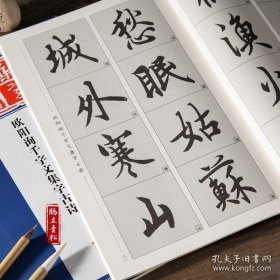 漁火
愁眠姑蘇
城外寒山
欧阳询千字文集字古诗
孔夫子旧书网